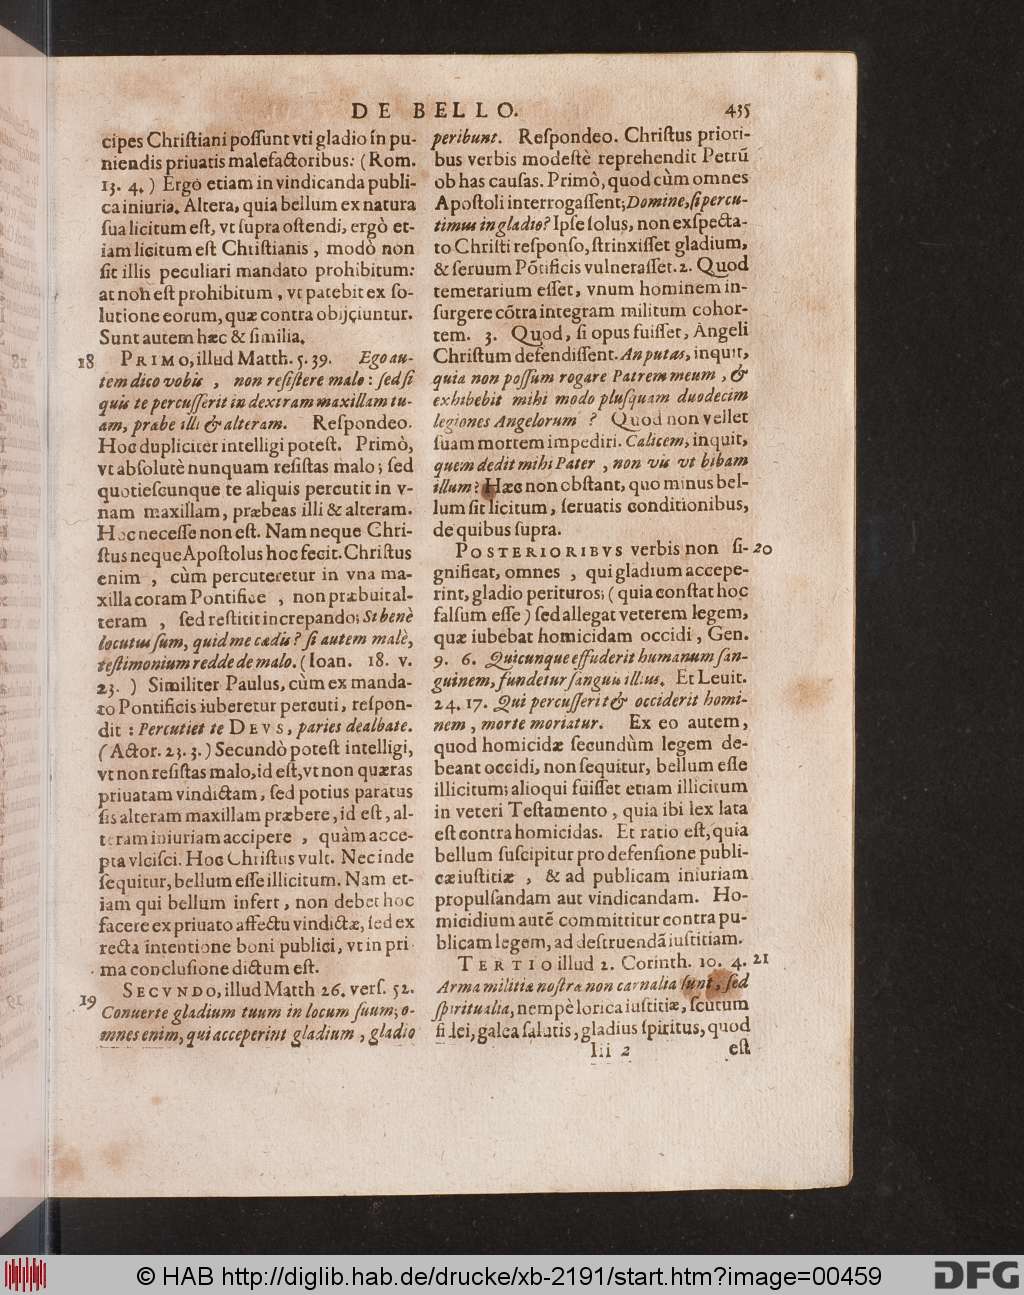 DE BELLO. 435
cipes Chriſtiani poſſunt vti gladio in pu-
niendis priuatis malefactoribus: (Rom.
13. 4.) Ergò etiam in vindicanda publi-
ca iniuria. Altera, quia bellum ex natura
ſua licitum eſt, vt ſupra oſtendi, ergò et-
iam licitum eſt Chriſtianis, modò non
ſit illis peculiari mandato prohibitum:
at non eſt prohibitum, vt patebit ex ſo-
lutione eorum, quæ contra obijciuntur.
Sunt autem hæc & ſimilia.
18 PRIMO, illud Matth. 5. 39. Ego au-
tem dico vobis, non reſiſtere malo: ſed ſi
quis te percuſſerit in dextram maxillam tu-
am, præbe illi & alteram. Reſpondeo.
Hoc dupliciter intelligi poteſt. Primò,
vt abſolutè nunquam reſiſtas malo; ſed
quotieſcunque te aliquis percutit in v-
nam maxillam, præbeas illi & alteram.
Hoc neceſſe non eſt. Nam neque Chri-
ſtus neque Apoſtolus hoc fecit. Chriſtus
enim, cùm percuteretur in vna ma-
xilla coram Pontifice, non præbuit al-
teram, ſed reſtitit increpando; Si benè
locutus ſum, quid me cædis? ſi autem malè,
teſtimonium redde de malo. (Ioan. 18. v.
23.) Similiter Paulus, cùm ex manda-
to Pontificis iuberetur percuti, reſpon-
dit: Percutiet te DEVS, paries dealbate.
(Actor. 23. 3.) Secundò poteſt intelligi,
vt non reſiſtas malo, id eſt, vt non quæras
priuatam vindictam, ſed potius paratus
ſis alteram maxillam præbere, id eſt, al-
teram iniuriam accipere, quàm acce-
pta vlciſci. Hoc Chriſtus vult. Nec inde
ſequitur, bellum eſſe illicitum. Nam et-
iam qui bellum infert, non debet hoc
facere ex priuato affectu vindictæ, ſed ex
recta intentione boni publici, vt in pri-
ma concluſione dictum eſt.
19 SECVNDO, illud Matth 26. verſ. 52.
Conuerte gladium tuum in locum ſuum; o-
mnes enim, qui acceperint gladium, gladio
peribunt. Reſpondeo. Chriſtus priori-
bus verbis modeſtè reprehendit Petrū
ob has cauſas. Primò, quod cùm omnes
Apoſtoli interrogaſſent; Domine, ſi percu-
timus in gladio? Ipſe ſolus, non exſpecta-
to Chriſti reſponſo, ſtrinxiſſet gladium,
& ſeruum Pōtificis vulneraſſet. 2. Quod
temerarium eſſet, vnum hominem in-
ſurgere cōtra integram militum cohor-
tem. 3. Quod, ſi opus fuiſſet, Angeli
Chriſtum defendiſſent. An putas, inquit,
quia non poſſum rogare Patrem meum, &
exhibebit mihi modo pluſquam duodecim
legiones Angelorum? Quod non vellet
ſuam mortem impediri. Calicem, inquit,
quem dedit mihi Pater, non vis vt bibam
illum? Hæc non obſtant, quo minus bel-
lum ſit licitum, ſeruatis conditionibus,
de quibus ſupra.
POSTERIORIBVS verbis non ſi- 20
gnificat, omnes, qui gladium accepe-
rint, gladio perituros; (quia conſtat hoc
falſum eſſe) ſed allegat veterem legem,
quæ iubebat homicidam occidi, Gen.
9. 6. Quicunque effuderit humanum ſan-
guinem, fundetur ſanguis illius. Et Leuit.
24. 17. Qui percuſſerit & occiderit homi-
nem, morte moriatur. Ex eo autem,
quod homicidæ ſecundùm legem de-
beant occidi, non ſequitur, bellum eſſe
illicitum; alioqui fuiſſet etiam illicitum
in veteri Teſtamento, quia ibi lex lata
eſt contra homicidas. Et ratio eſt, quia
bellum ſuſcipitur pro defenſione publi-
cæ iuſtitiæ, & ad publicam iniuriam
propulſandam aut vindicandam. Ho-
micidium autē committitur contra pu-
blicam legem, ad deſtruendā iuſtitiam.
TERTIO illud 2. Corinth. 10. 4. 21
Arma militiæ noſtræ non carnalia ſunt, ſed
ſpiritualia, nempè lorica iuſtitiæ, ſcutum
fidei, galea ſalutis, gladius ſpiritus, quod
Iii 2 eſt
© HAB http://diglib.hab.de/drucke/xb-2191/start.htm?image=00459
DFG